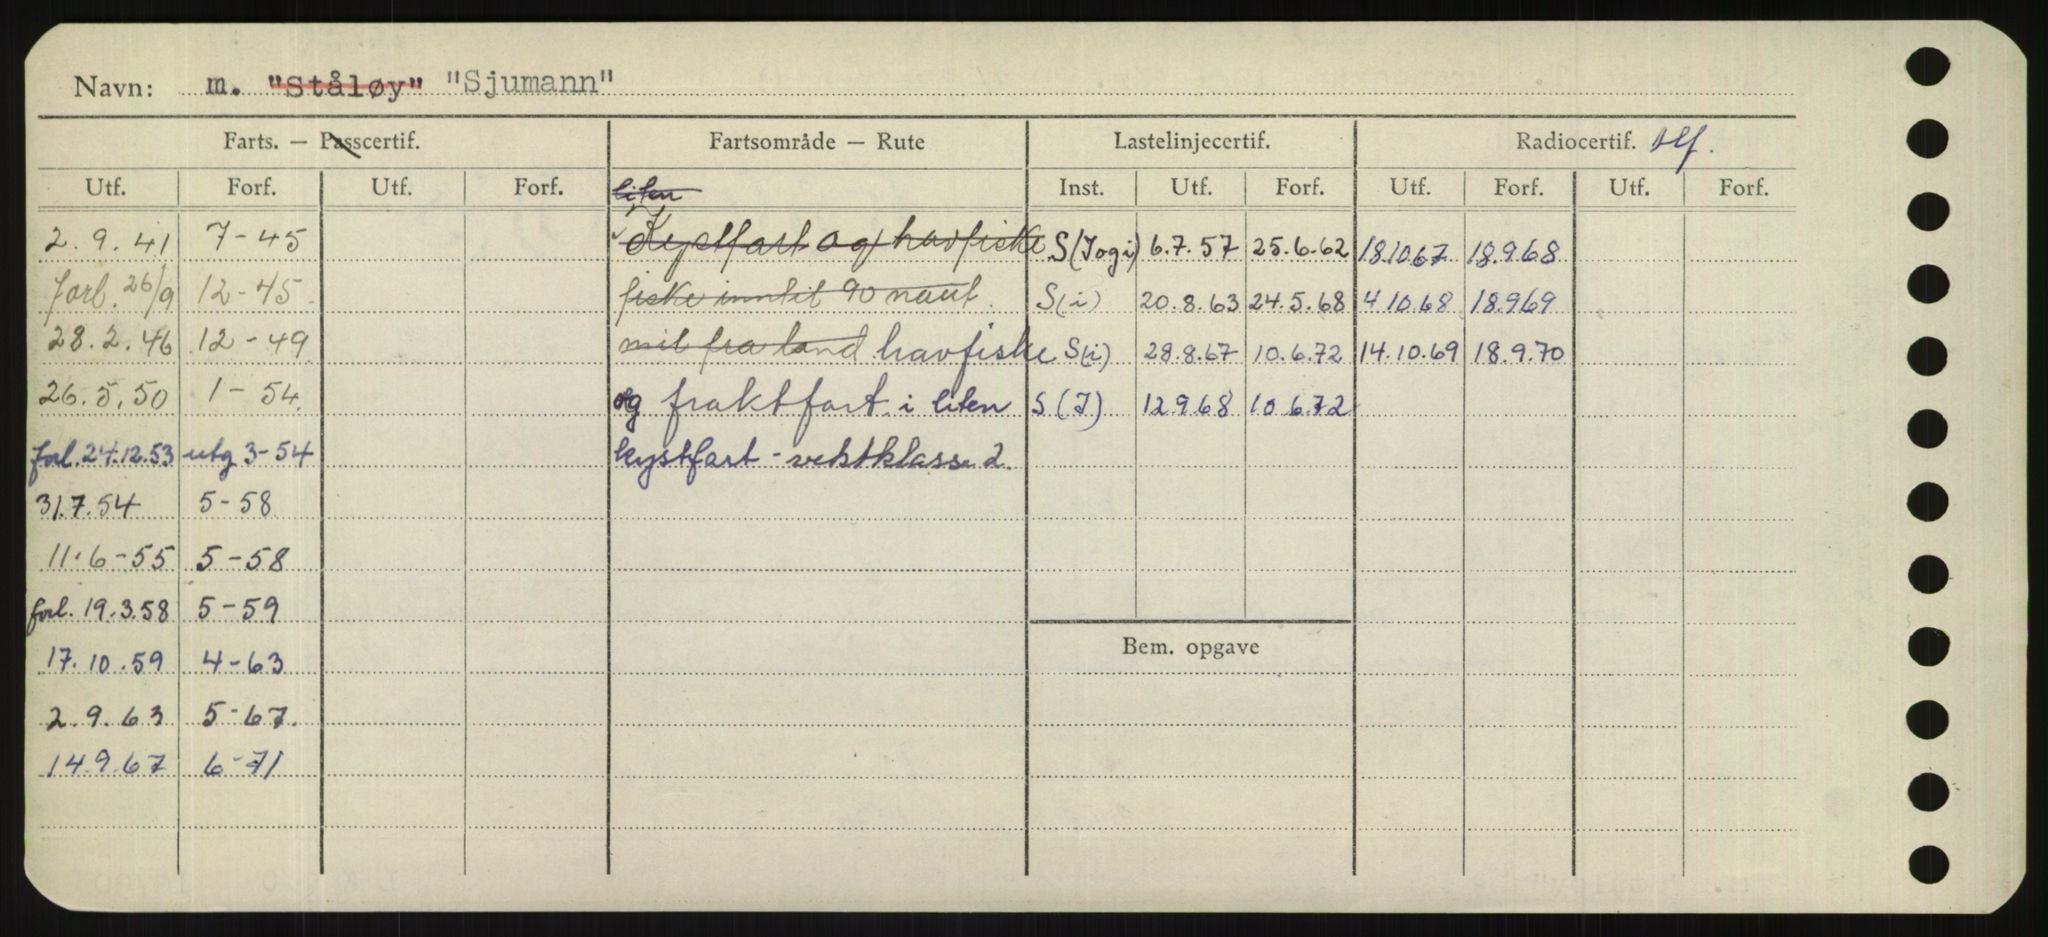 Navn: m. "Ståløy" "Sjumann"
Farts. — Passcertif. Fartsområde — Rute Lastelinjecertif. Radiocertif. tlf.
Utf. Forf. Utf. Forf. liten Inst. Utf. Forf. Utf. Forf. Utf. Forf.
2.9.41 7-45 Kystfart og havfiske S(Jogi) 6.7.57 25.6.62 18.10.67 18.9.68
forl. 26/9 12-45 fiske inntil 90 naut. S(i) 20.8.63 24.5.68 4.10.68 18.9.69
28.2.46 12-49 mil fra land havfiske S(i) 28.8.67 10.6.72 14.10.69 18.9.70
26.5.50 1-54. og fraktfart i liten S(J) 12.9.68 10.6.72
forl. 24.12.53 utg 3-54 kystfart - vektklasse 2.
31.7.54 5-58
11.6-55 5-58
forl. 19.3.58 5-59
17.10.59 4-63 Bem. opgave
2.9.63 5-67.
14.9.67 6-71